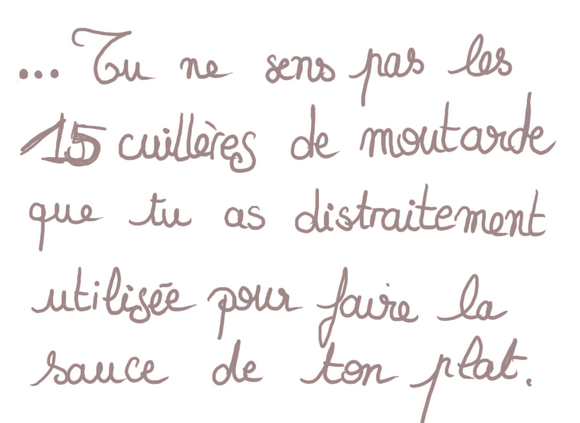 ... Tu ne sens pas les
15 cuillères de moutarde
que tu as distraitement
utilisée pour faire la
sauce de ton plat.